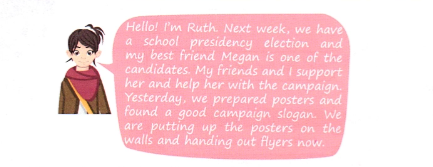 Hello! I'm Ruth. Next week, we have
a school presidency election and
my best friend Megan is one of the
candidates. My friends and I support
her and help her with the campaign.
Yesterday, we prepared posters and
found a good campaign slogan. We
are putting up the posters on the
walls and handing out flyers now.